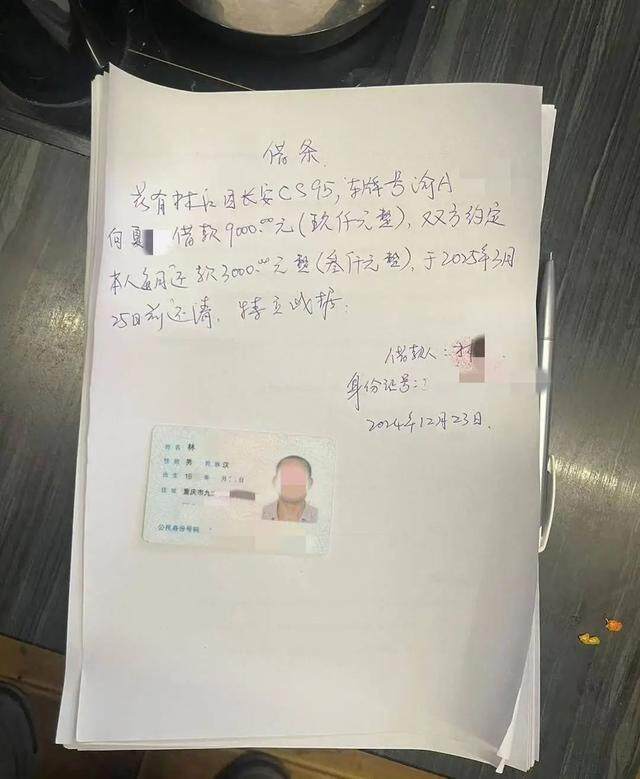 借条
兹有林 因长安CS95,车牌号渝A
向夏 借款9000.00元(玖仟元整),双方约定
本人每月还款3000.00元整(叁仟元整),于2025年3月
25日前还清,特立此据:
借款人:林
身份证号:
2024年12月23日.
姓名 林
性别 男 民族 汉
出生 19 年 月 日
住址 重庆市九
公民身份号码